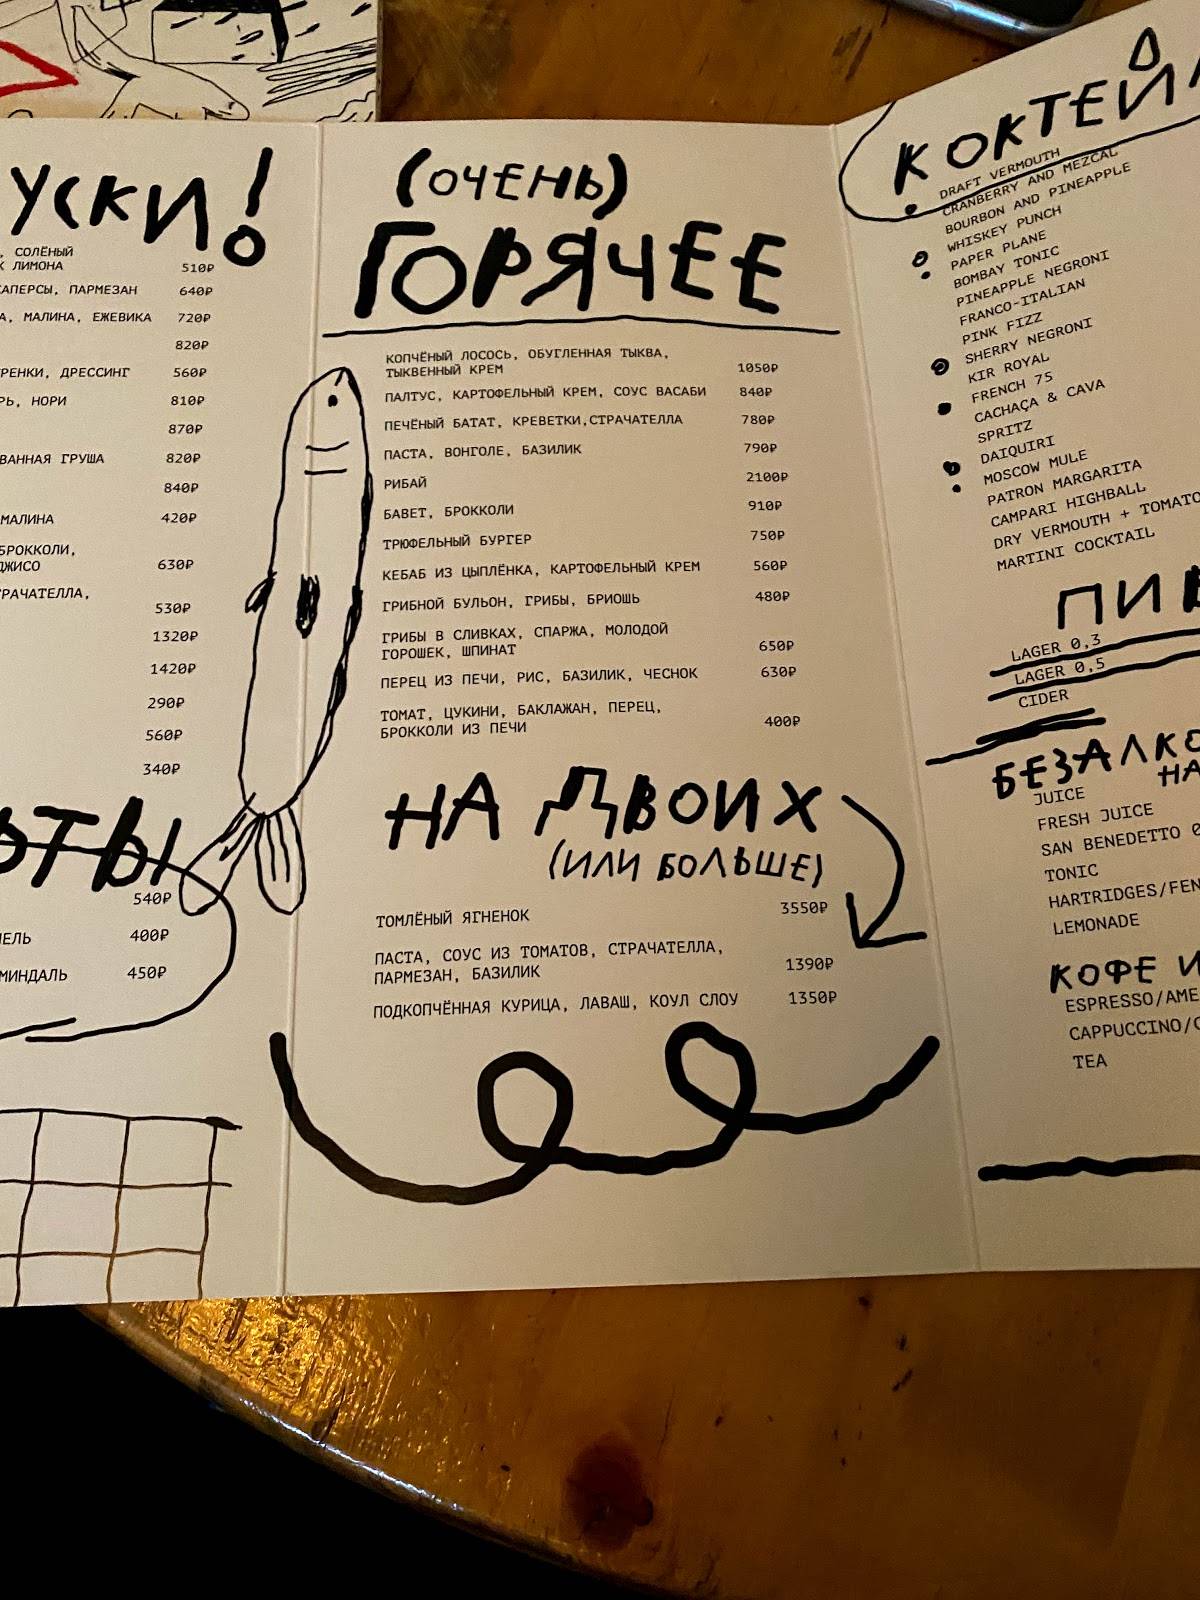 УСКИ!
, СОЛЁНЫЙ
ЛИМОНА 510₽
КАПЕРСЫ, ПАРМЕЗАН 640₽
А, МАЛИНА, ЕЖЕВИКА 720₽
820₽
РЕНКИ, ДРЕССИНГ 560₽
РЬ, НОРИ 810₽
870₽
ВАННАЯ ГРУША 820₽
840₽
МАЛИНА 420₽
БРОККОЛИ,
ДЖИСО 630₽
РАЧАТЕЛЛА,
530₽
1320₽
1420₽
290₽
560₽
340₽
РТЫ
540₽
ЕЛЬ 400₽
МИНДАЛЬ 450₽
(ОЧЕНЬ)
ГОРЯЧЕЕ
КОПЧЁНЫЙ ЛОСОСЬ, ОБУГЛЕННАЯ ТЫКВА,
ТЫКВЕННЫЙ КРЕМ 1050₽
ПАЛТУС, КАРТОФЕЛЬНЫЙ КРЕМ, СОУС ВАСАБИ 840₽
ПЕЧЁНЫЙ БАТАТ, КРЕВЕТКИ,СТРАЧАТЕЛЛА 780₽
ПАСТА, ВОНГОЛЕ, БАЗИЛИК 790₽
РИБАЙ 2100₽
БАВЕТ, БРОККОЛИ 910₽
ТРЮФЕЛЬНЫЙ БУРГЕР 750₽
КЕБАБ ИЗ ЦЫПЛЁНКА, КАРТОФЕЛЬНЫЙ КРЕМ 560₽
ГРИБНОЙ БУЛЬОН, ГРИБЫ, БРИОШЬ 480₽
ГРИБЫ В СЛИВКАХ, СПАРЖА, МОЛОДОЙ
ГОРОШЕК, ШПИНАТ 650₽
ПЕРЕЦ ИЗ ПЕЧИ, РИС, БАЗИЛИК, ЧЕСНОК 630₽
ТОМАТ, ЦУКИНИ, БАКЛАЖАН, ПЕРЕЦ,
БРОККОЛИ ИЗ ПЕЧИ 400₽
НА ДВОИХ
(ИЛИ БОЛЬШЕ)
ТОМЛЁНЫЙ ЯГНЕНОК 3550₽
ПАСТА, СОУС ИЗ ТОМАТОВ, СТРАЧАТЕЛЛА,
ПАРМЕЗАН, БАЗИЛИК 1390₽
ПОДКОПЧЁННАЯ КУРИЦА, ЛАВАШ, КОУЛ СЛОУ 1350₽
КОКТЕЙЛ
DRAFT VERMOUTH
CRANBERRY AND MEZCAL
BOURBON AND PINEAPPLE
WHISKEY PUNCH
PAPER PLANE
BOMBAY TONIC
PINEAPPLE NEGRONI
FRANCO-ITALIAN
PINK FIZZ
SHERRY NEGRONI
KIR ROYAL
FRENCH 75
CACHAÇA & CAVA
SPRITZ
DAIQUIRI
MOSCOW MULE
PATRON MARGARITA
CAMPARI HIGHBALL
DRY VERMOUTH + TOMATO
MARTINI COCKTAIL
ПИВ
LAGER 0,3
LAGER 0,5
CIDER
БЕЗАЛКО
НА
JUICE
FRESH JUICE
SAN BENEDETTO 0
TONIC
HARTRIDGES/FEN
LEMONADE
КОФЕ И
ESPRESSO/AME
CAPPUCCINO/
TEA